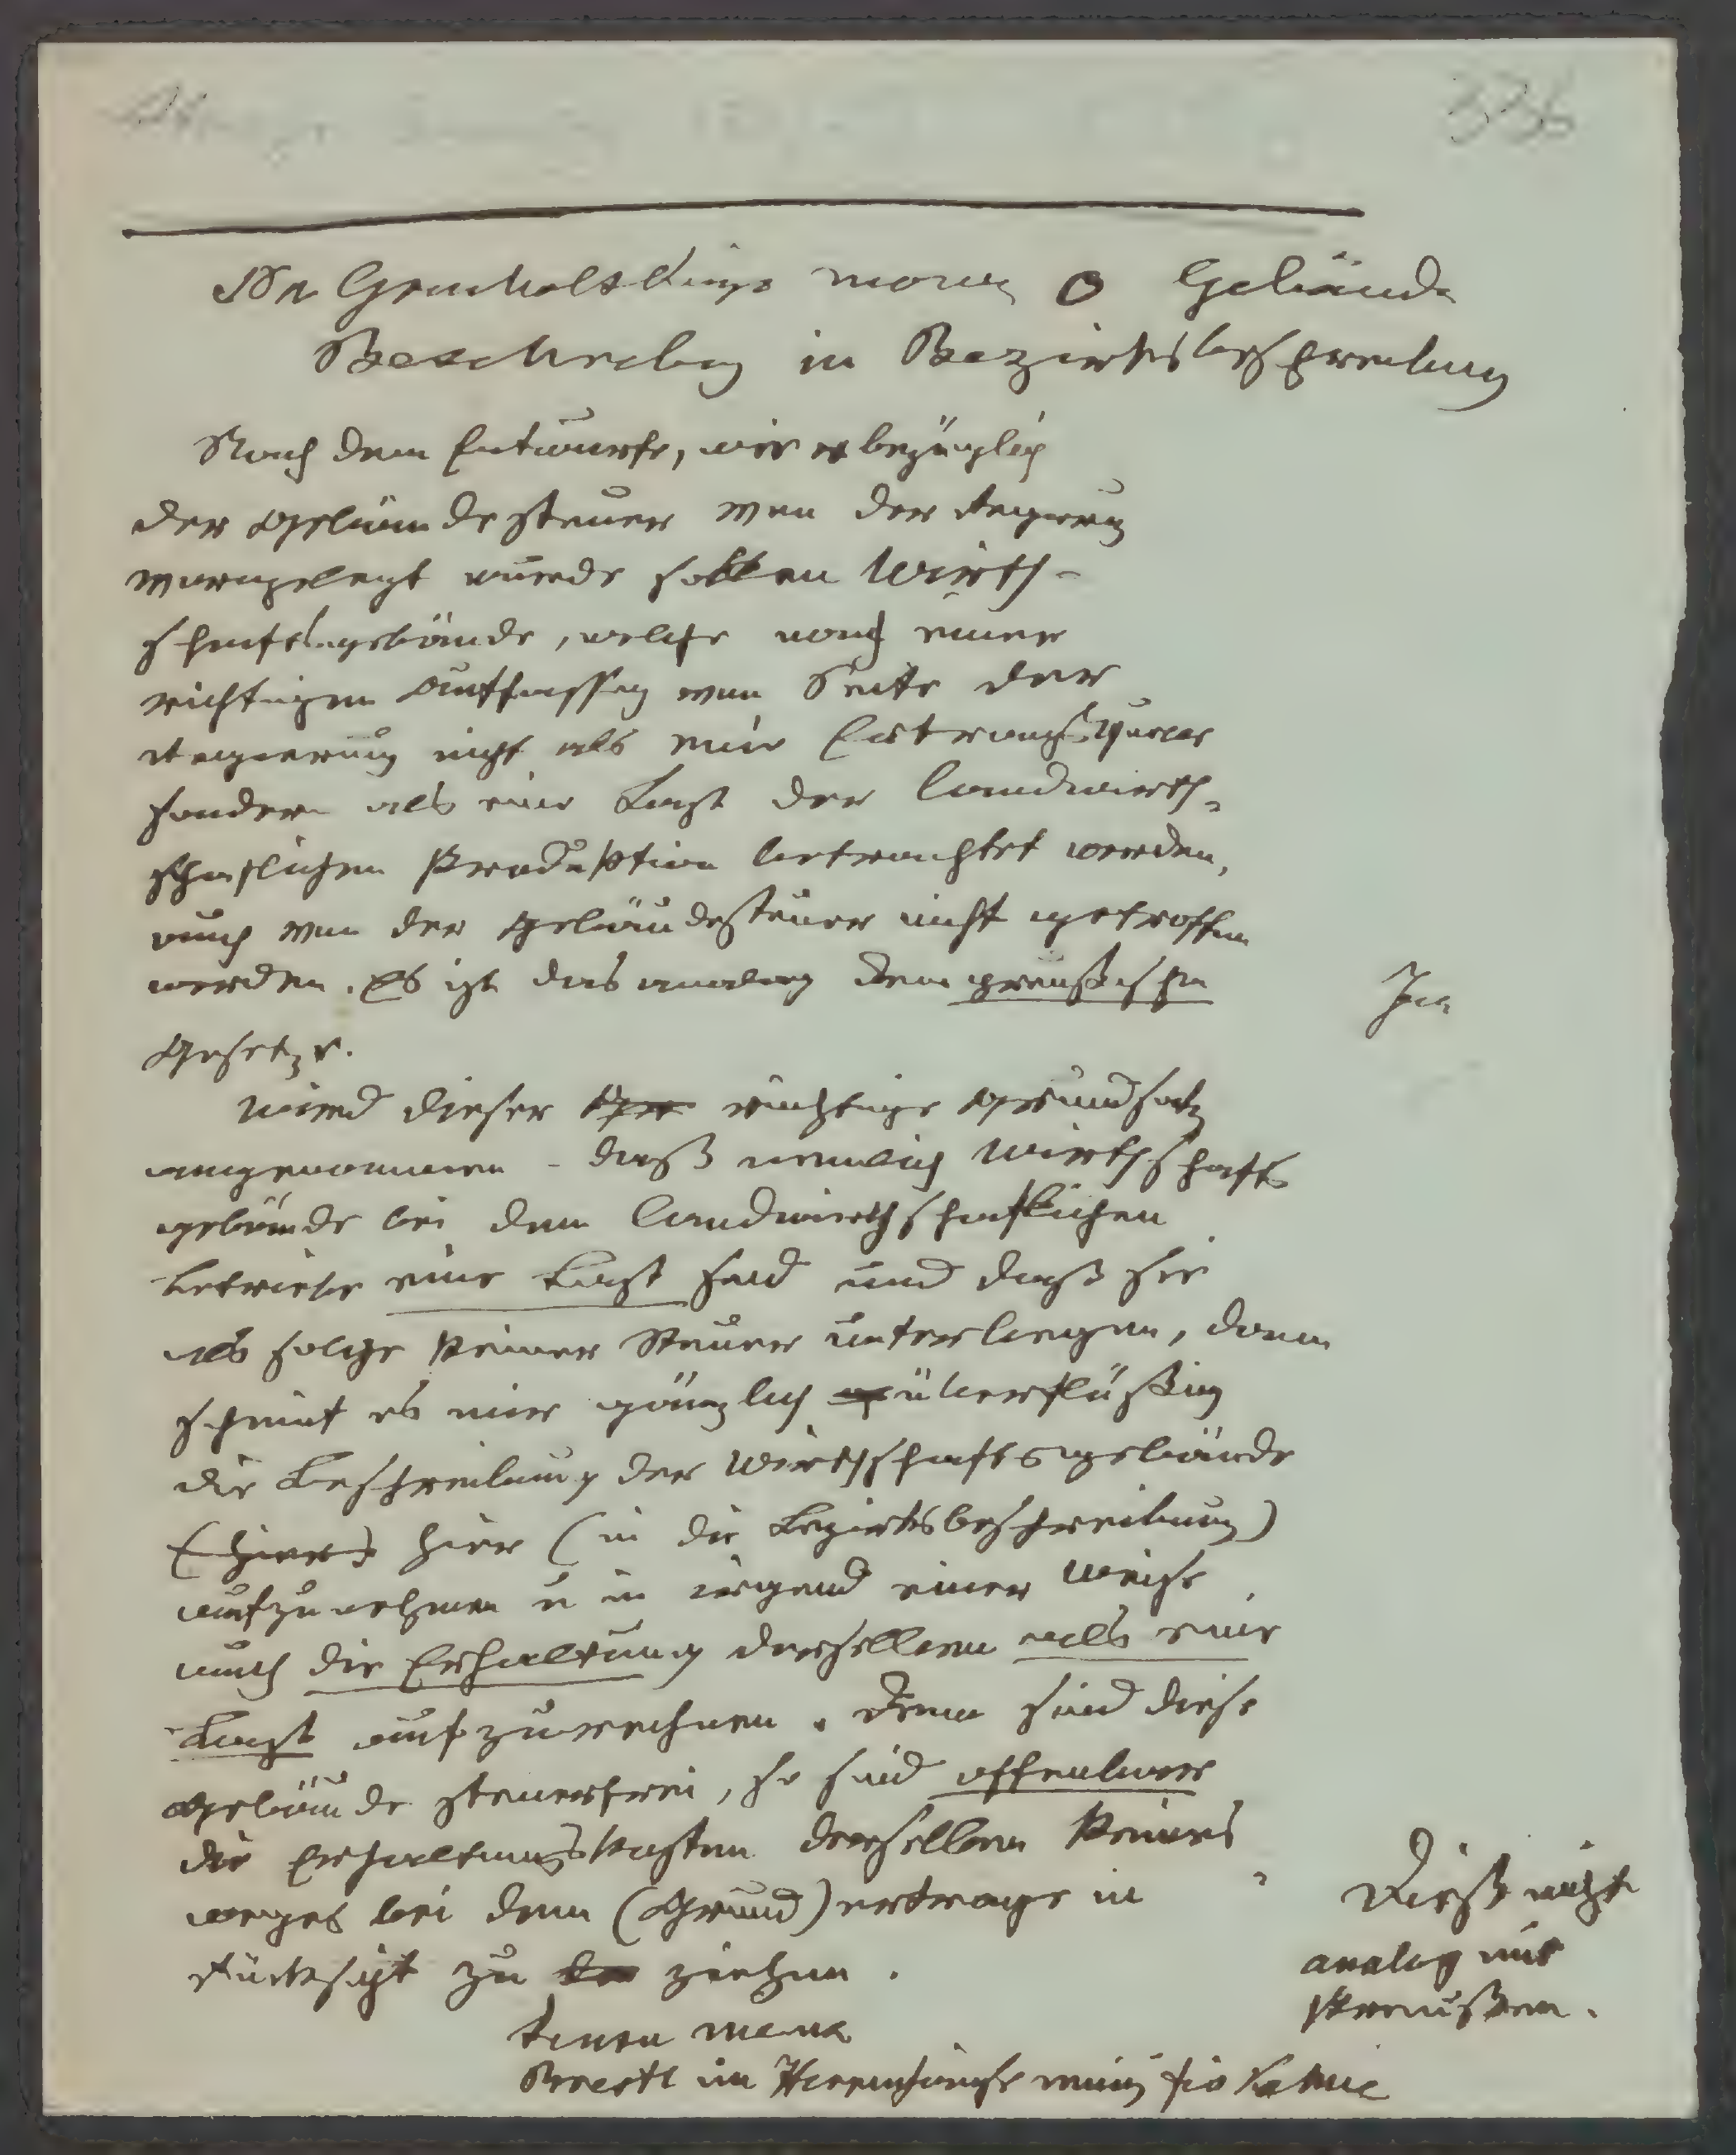 336
Gebäude
in Bezirksbeschreibung
Nach dem Entwurfe, wie er bezüglich
der Gebäudesteuer von der Regierung
vorgelegt wurde sollen Wirth-
schaftsgebäude, welche nach einer
richtigen Auffassung von Seite der
Regierung nicht als eine Ertragsquelle
sondern als eine Last der landwirth-
schaftlichen Produktion betrachtet werden,
auch von der Gebäudesteuer nicht getroffen
werden. Es ist das analog dem preußischen
Gesetze.
Wird dieser richtige Grundsatz
angenommen – daß nemlich Wirthschafts
gebäude bei dem landwirthschaftlichen
Betriebe eine Last sind und daß sie
als solche keiner Steuer unterliegen, dann
scheint es mir gänzlich überflüßig
die Beschreibung der Wirthschaftsgebäude
(hier) hier (in die Bezirksbeschreibung)
aufzunehmen u in irgend einer Weise
auch die Erhaltung derselben als eine
Last aufzurechnen. Denn sind diese
Gebäude steuerfrei, so sind offenbar
die Erhaltungskosten derselben keines
weges bei dem (Grund)ertrage in
Rücksicht zu ziehen.
Dieß nicht
analog mit
Preußen.
im Herrenhause